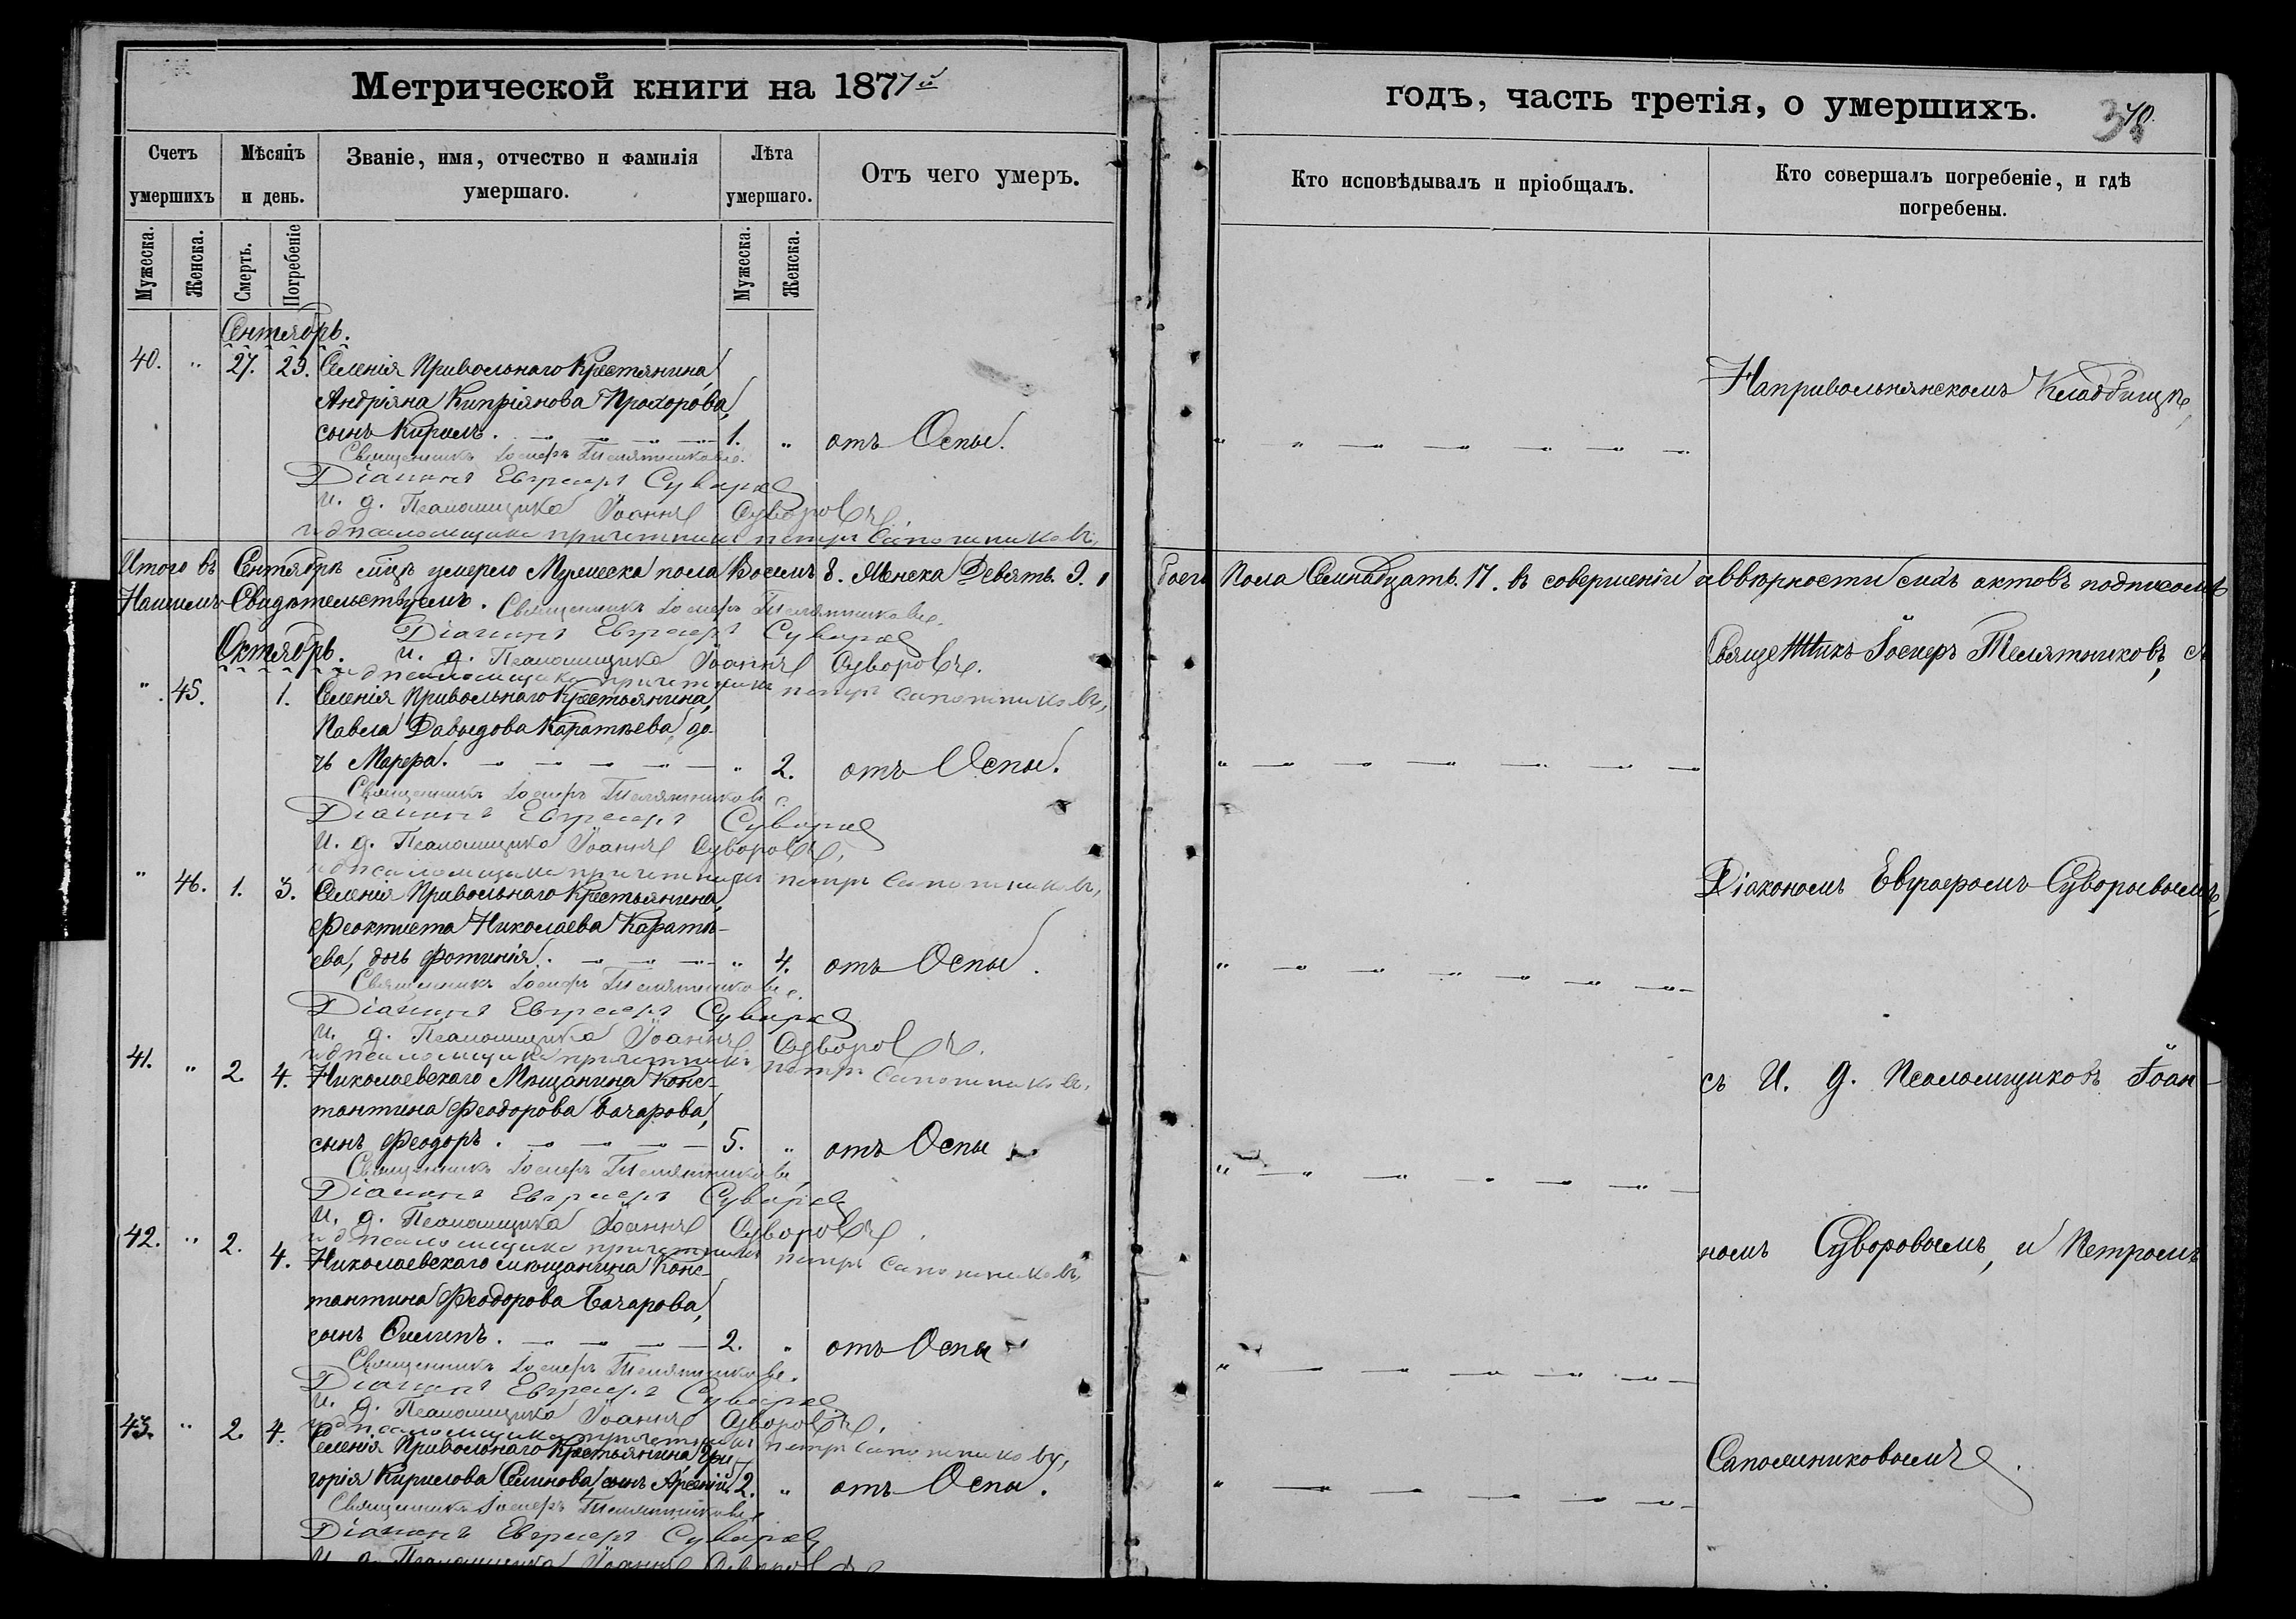 Метрической книги на 1871й
годъ, часть третія, о умершихъ.
Счетъ умершихъ
Мѣсяцъ и день.
Званіе, имя, отчество и фамилія
умершаго.
Лѣта умершаго.
Отъ чего умеръ.
Кто исповѣдывалъ и пріобщалъ.
Кто совершалъ погребеніе, и гдѣ
погребены.
Мужеска.
Женска.
Смерть.
Погребеніе
Мужеска.
Женска.
Сентябрь.
40. " 27. 29. Селенія Привольнаго Крестянина,
Андріяна Кипріянова Прохорова,
сынъ Кирилъ. 1. " отъ Оспы.
Священникъ Іосифъ Телятниковъ.
Діаконъ Евграфъ Суворовъ
И. д. Псаломщика Іоаннъ Суворовъ,
и д псаломщика причетникъ петръ Сапожниковъ,
На привольнянскомъ Кладбищѣ,
Итого въ Сентябрѣ м̃цѣ умерло Мужеска пола Восемь 8. Женска Девять 9.
обоего Пола Семнадцать. 17. въ совершеніи и в вѣрности сихъ актовъ подписомъ
Нашимъ Свидѣтельствуемъ. Священникъ Іосифъ Телятниковъ.
Діаконъ Евграфъ Суворовъ
Октябрь.
И. д. Псаломщика Іоаннъ Суворовъ.
и д псаломщика причетникъ петръ Сапожниковъ,
Священникъ Іосифъ Телятниковъ, съ
" 45. 1. Селенія Привольнаго Крестьянина,
Павла Давыдова Каратѣева, до-
чь Марфа. " 2. отъ Оспы.
Священникъ Іосифъ Телятниковъ
Діаконъ Евграфъ Суворовъ
И. д. Псаломщика Іоаннъ Суворовъ,
и д псаломщика причетникъ петръ Сапожниковъ,
Діакономъ Евграфомъ Суворовымъ,
" 46. 1. 3. Селенія Привольнаго Крестьянина,
Феоктиста Николаева Каратѣ-
ева, дочь Фотинія. " 4. отъ Оспы.
Священникъ Іосифъ Телятниковъ.
Діаконъ Евграфъ Суворовъ
И. д. Псаломщика Іоаннъ Суворовъ.
и д псаломщика причетникъ петръ Сапожниковъ,
41. " 2. 4. Николаевскаго Мѣщанина Конс-
тантина Феодорова Бачарова,
сынъ Феодоръ. 5. " отъ Оспы
съ И. д. Псаломщиковъ Іоан-
Священникъ Іосифъ Телятниковъ,
Діаконъ Евграфъ Суворовъ
И. д. Псаломщика Іоаннъ Суворовъ,
и д псаломщика причетникъ петръ Сапожниковъ,
42. " 2. 4. Николаевскаго мѣщанина Конс-
тантина Феодорова Бачарова,
сынъ Филипъ. 2. " отъ Оспы
номъ Суворовымъ, и Петромъ
Священникъ Іосифъ Телятниковъ.
Діаконъ Евграфъ Суворовъ
И. д. Псаломщика Іоаннъ Суворовъ,
и д псаломщика причетникъ петръ Сапожниковъ,
43. " 2. 4. Селенія Привольнаго Крестьянина, Гри-
горія Кирилова Семнова, сынъ Арсеній. 2. " отъ Оспы.
Сапожниковымъ.
Священникъ Іосифъ Телятниковъ
Діаконъ Евграфъ Суворовъ
И. д. Псаломщика Іоаннъ Суворовъ